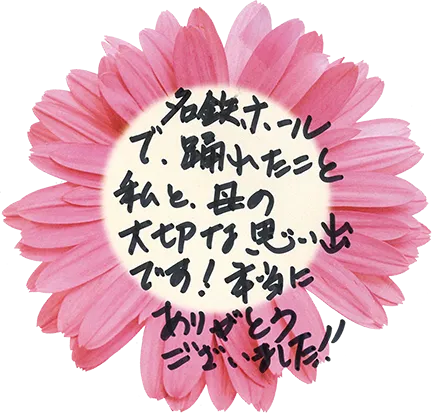 名鉄ホール
で、踊れたこと
私と、母の
大切な思い出
です！本当に
ありがとう
ございました!!